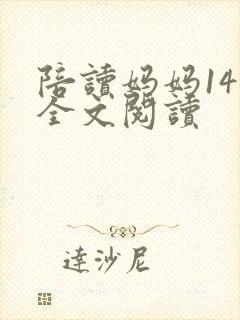 陪讀妈妈14
全文閱讀
達沙尼